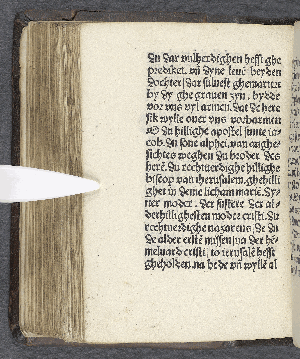 Du dar vulherdighen hefft ghe
prediket. vñ dyne leuē beyden
dochter/ dar suluest ghemartert
by dy ghe grauen syn. bydde
vor vns vyl armen. dat de here
sik wylle ouer vns vorbarmen
O du hillighe apostel sunte ia-
cob. du sone alphei. van anghe-
sichtes weghen du broder des
herē. du rechtuerdighe hillighe
biscop van iherusalem. ghehilli
ghet in dyme licham marie. dy-
ner moder. der sustere der al-
derhillighesten moder cristi. du
rechtuerdighe nazareus. de du
de alder erste missen na der he-
meluard cristi. to ierusalē hefst
gheholden. na bede vñ wylle al